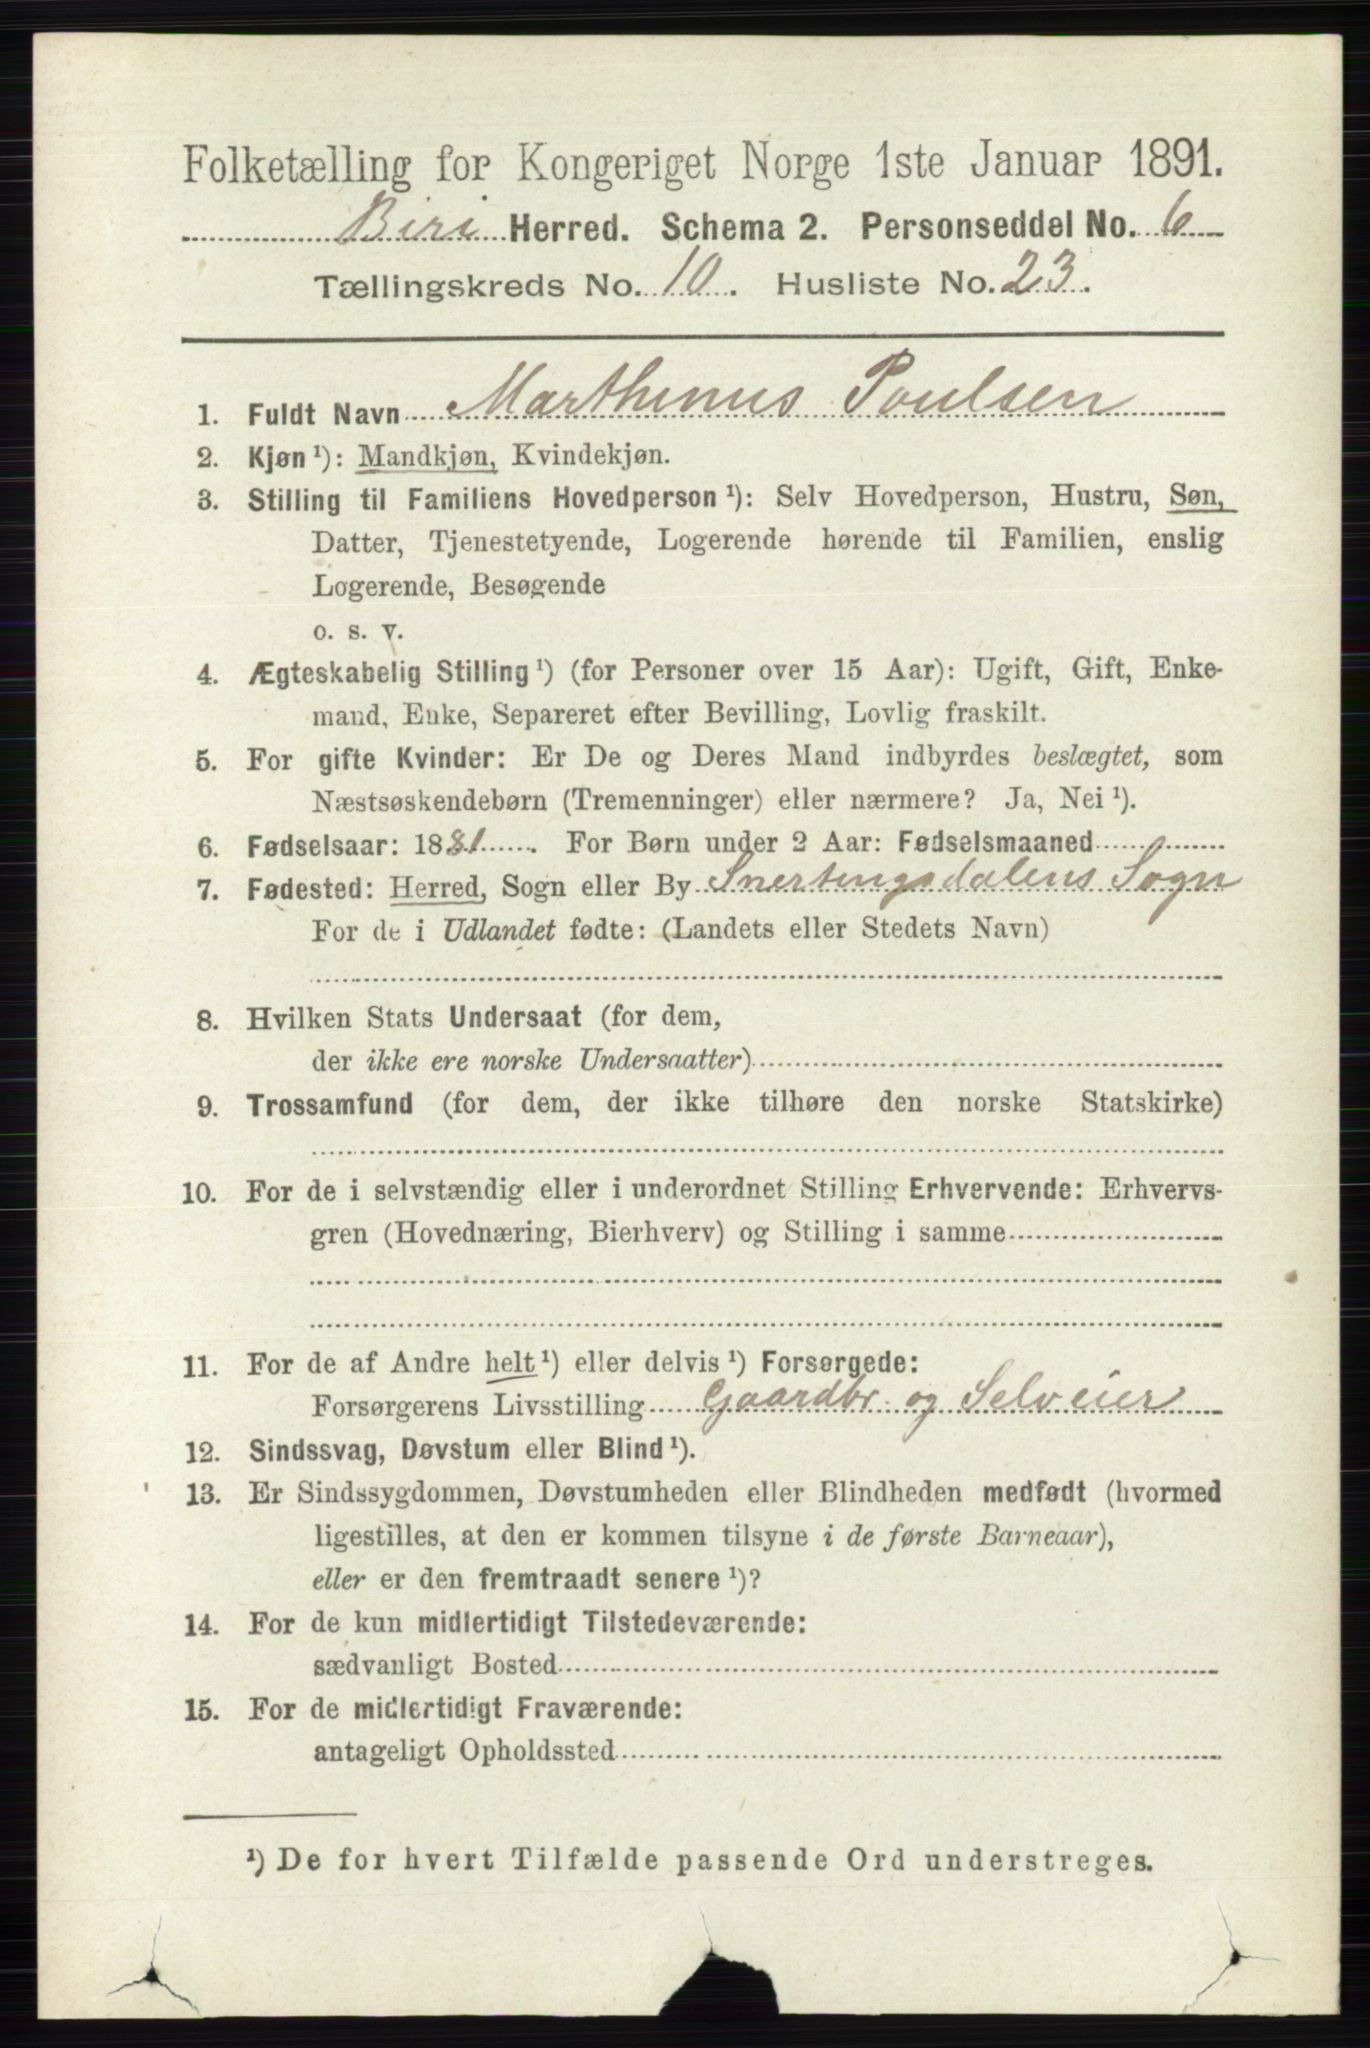 Folketælling for Kongeriget Norge 1ste Januar 1891.
Biri Herred. Schema 2. Personseddel No. 6
Tællingskreds No. 10. Husliste No. 23.
1. Fuldt Navn Marthinus Poulsen
2. Kjøn ¹): Mandkjøn, Kvindekjøn.
3. Stilling til Familiens Hovedperson ¹): Selv Hovedperson, Hustru, Søn,
Datter, Tjenestetyende, Logerende hørende til Familien, enslig
Logerende, Besøgende
o. s. v.
4. Ægteskabelig Stilling ¹) (for Personer over 15 Aar): Ugift, Gift, Enke-
mand, Enke, Separeret efter Bevilling, Lovlig fraskilt.
5. For gifte Kvinder: Er De og Deres Mand indbyrdes beslægtet, som
Næstsøskendebørn (Tremenninger) eller nærmere? Ja, Nei ¹).
6. Fødselsaar: 1881. For Børn under 2 Aar: Fødselsmaaned
7. Fødested: Herred, Sogn eller By Snertingsdalens Sogn
For de i Udlandet fødte: (Landets eller Stedets Navn)
8. Hvilken Stats Undersaat (for dem,
der ikke ere norske Undersaatter)
9. Trossamfund (for dem, der ikke tilhøre den norske Statskirke)
10. For de i selvstændig eller i underordnet Stilling Erhvervende: Erhvervs-
gren (Hovednæring, Bierhverv) og Stilling i samme
11. For de af Andre helt ¹) eller delvis ¹) Forsørgede:
Forsørgerens Livsstilling Gaardbr. og Selveier
12. Sindssvag, Døvstum eller Blind ¹).
13. Er Sindssygdommen, Døvstumheden eller Blindheden medfødt (hvormed
ligestilles, at den er kommen tilsyne i de første Barneaar),
eller er den fremtraadt senere ¹)?
14. For de kun midlertidigt Tilstedeværende:
sædvanligt Bosted
15. For de midlertidigt Fraværende:
antageligt Opholdssted
¹) De for hvert Tilfælde passende Ord understreges.